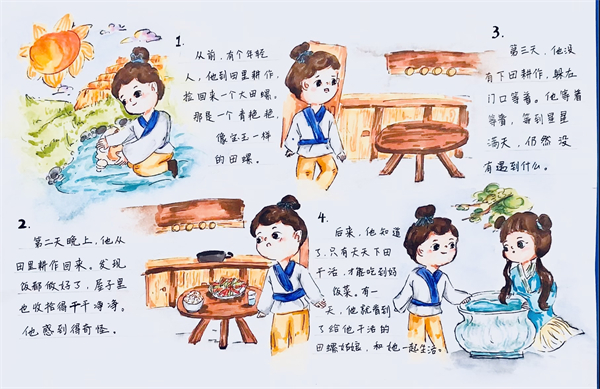 1.
从前,有个年轻
人,他到田里耕作,
捡回来一个大田螺。
那是一个青艳艳,
像宝玉一样
的田螺。
2.
第二天晚上,他从
田里耕作回来。发现
饭都做好了,屋子里
也收拾得干干净净。
他感到得奇怪。
3.
第三天,他没
有下田耕作,躲在
门口等着。他等着
等着,等到星星
满天,仍然没
有遇到什么。
4.
后来,他知道
了,只有天天下田
干活,才能吃到好
饭菜。有一
天,他就看到
了给他干活的
田螺姑娘,和她一起生活。